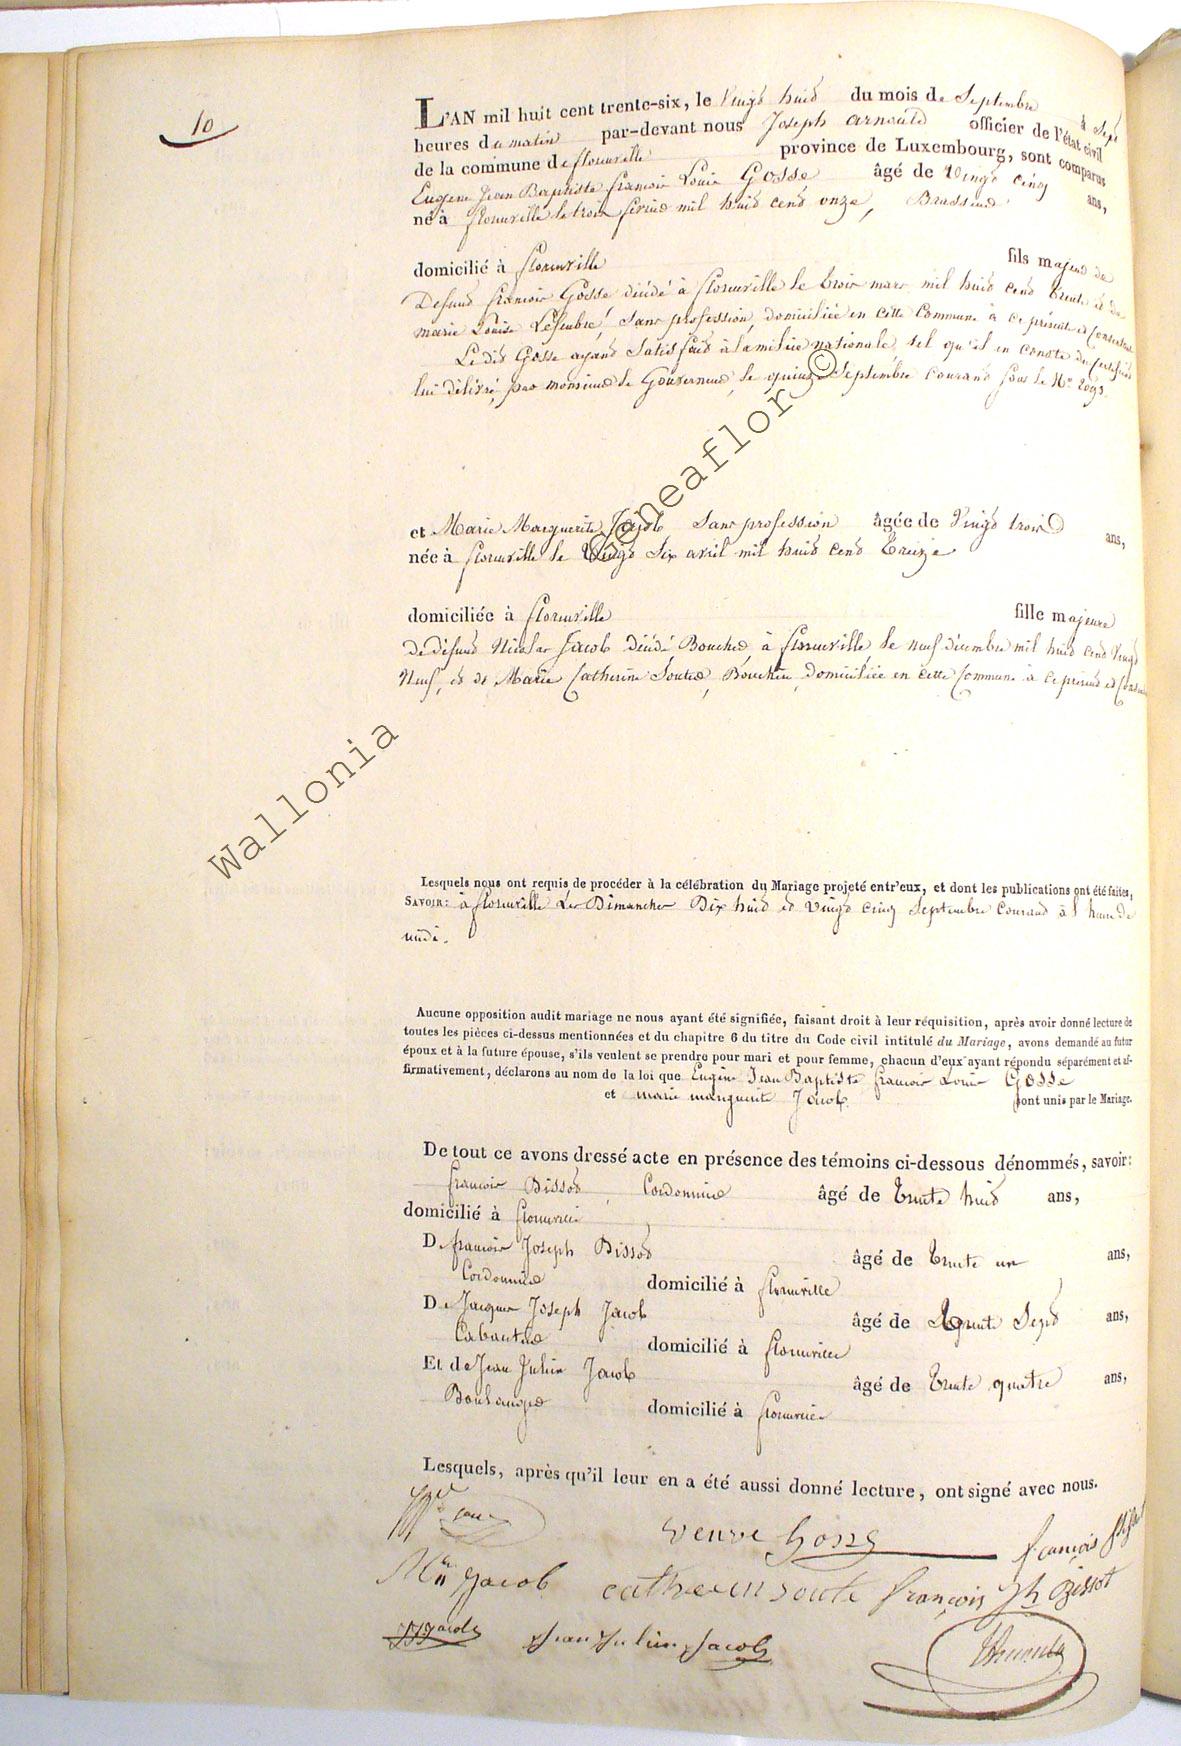 10
L'AN mil huit cent trente-six, le Vingt huit du mois de Septembre à Sept
heures du matin par-devant nous Joseph arnould officier de l'état civil
de la commune de florenville province de Luxembourg, sont comparus
Eugene Jean Baptiste francois Louis Gosse âgé de Vingt cinq ans,
né à florenville le trois fevrier mil huit cent onze, Brasseur
domicilié à florenville fils majeur de
Defunt francois Gosse décédé à florenville le trois mars mil huit cent trente et de
marie Louise Lefeubre, Sans profession, domiciliée en cette Commune à ce présente et Consentante
Le dit Gosse ayant Satisfait à la milice nationale, tel qu'il en conste du Certificat
lui délivré, par monsieur le Gouverneur, le quinze Septembre courant sous le No
et Marie Marguerite Jacob Sans profession âgée de Vingt trois ans,
née à florenville le Vingt Six avril mil huit cent Treize
domiciliée à florenville fille majeure
de défunt Nicolas Jacob décédé Boucher à florenville le neuf décembre mil huit cent Vingt
Neuf, et de Marie Catherine Soutre, Bouchère, domiciliée en cette Commune à ce présente et
Lesquels nous ont requis de procéder à la célébration du Mariage projeté entr'eux, et dont les publications ont été faites,
SAVOIR: à florenville Les Dimanches Dix huit et Vingt cinq Septembre Courant à l'heure de
midi.
Aucune opposition audit mariage ne nous ayant été signifiée, faisant droit à leur réquisition, après avoir donné lecture de
toutes les pièces ci-dessus mentionnées et du chapitre 6 du titre du Code civil intitulé du Mariage, avons demandé au futur
époux et à la future épouse, s'ils veulent se prendre pour mari et pour femme, chacun d'eux ayant répondu séparément et af-
firmativement, déclarons au nom de la loi que Eugène Jean Baptiste francois Louis Gosse
et marie marguerite Jacob sont unis par le Mariage.
De tout ce avons dressé acte en présence des témoins ci-dessous dénommés, savoir:
francois Bissot, Cordonnier âgé de trente huit ans,
domicilié à florenville
De francois Joseph Bissot âgé de trente un ans,
Cordonnier domicilié à florenville
De Jacques Joseph Jacob âgé de trente Sept ans,
Cabaretier domicilié à florenville
Et de Jean Julien Jacob âgé de trente quatre ans,
Boulanger domicilié à florenville
Lesquels, après qu'il leur en a été aussi donné lecture, ont signé avec nous.
veuve Gosse françois
Jacob catherin soute françois Jh Bissot
JJJacob Jean Julien Jacob
Wallonia Geneaflor ©